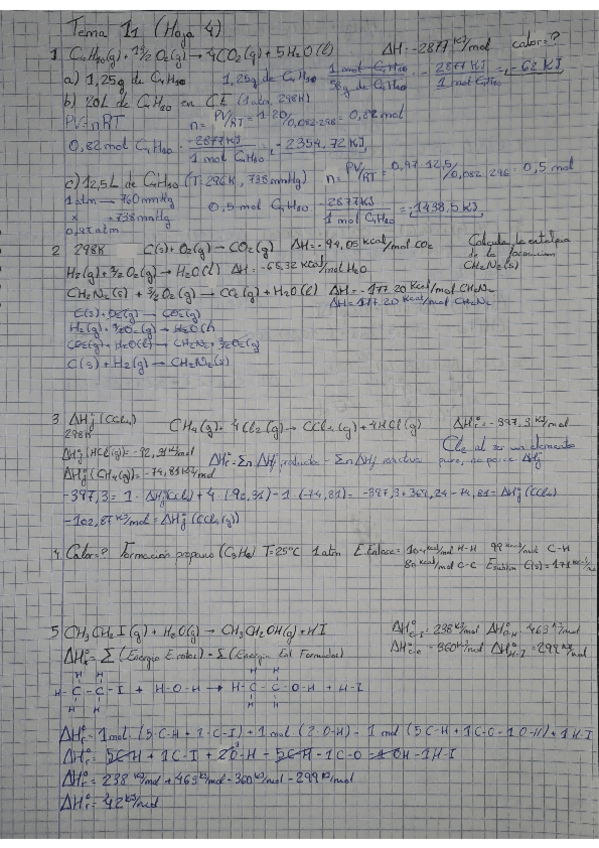 Tema 11 (Hoja 4)
1 C4H10(g) + 13/2 O2(g) → 4CO2(g) + 5H2O(l) ΔH = -2877 KJ/mol calor = ?
a) 1,25g de C4H10 1,25g de C4H10 · 1 mol C4H10 / 58g de C4H10 · -2877 KJ / 1 mol C4H10 = -62 KJ
b) 20L de C4H10 en CE (1atm, 298K)
PV=nRT n= PV/RT = 1·20/0,082·298 = 0,82 mol
0,82 mol C4H10 · -2877KJ / 1 mol C4H10 = -2354,72KJ
c) 12,5L de C4H10 (T: 296K, 738mmHg) n= PV/RT = 0,97·12,5/0,082·296 = 0,5 mol
1 atm → 760mmHg
x → 738mmHg 0,5 mol C4H10 · -2877KJ / 1 mol C4H10 = -1438,5KJ
0,97 atm
2 298K C(s) + O2(g) → CO2(g) ΔH = -94,05 Kcal/mol CO2 Calcula la entalpia de la formación CH2N2(s)
H2(g) + 1/2 O2(g) → H2O(l) ΔH = -68,32 Kcal/mol H2O
CH2N2(s) + 3/2 O2(g) → CO2(g) + H2O(l) ΔH = -177.20 Kcal/mol CH2N2
ΔH = 177.20 Kcal/mol CH2N2
C(s) + O2(g) → CO2(g)
H2(g) + 1/2 O2(g) → H2O(l)
CO2(g) + H2O(l) → CH2N2 + 3/2 O2(g)
C(s) + H2(g) → CH2N2(s)
3 ΔHf° (CCl4) CH4(g) + 4Cl2(g) → CCl4(g) + 4HCl(g) ΔHr° = -397,3 KJ/mol
298K
ΔHf°(HCl(g)) = -92,31 KJ/mol ΔH°r = Σn ΔHf productos - Σn ΔHf reactivos Cl2 al ser un elemento puro, no posee ΔHf
ΔHf°(CH4(g)) = -74,81 KJ/mol
-397,3 = 1 · ΔHf°(CCl4) + 4 · (-92,31) - 1 · (-74,81) = -397,3 + 369,24 - 74,81 = ΔHf°(CCl4)
-102,87 KJ/mol = ΔHf°(CCl4(g))
4 Calor = ? Formación propano (C3H8) T = 25°C 1 atm E.Enlace = 104 Kcal/mol H-H 99 Kcal/mol C-H
80 Kcal/mol C-C Esublim C(s) = 171 Kcal/mol
5 CH3CH2I(g) + H2O(g) → CH3CH2OH(g) + HI ΔH°C-I = 238 KJ/mol ΔH°O-H = 463 KJ/mol
ΔHr° = Σ (Energia E rotos) - Σ (Energia Enl Formados) ΔH°C-O = 360 KJ/mol ΔH°H-I = 299 KJ/mol
H H H H
H-C-C-I + H-O-H → H-C-C-O-H + H-I
H H H H
ΔHr° = 1 mol · (5·C-H + 1·C-I) + 1 mol (2·O-H) - 1 mol (5 C-H + 1 C-O + 1 O-H) + 1 H-I
ΔHr° = 5C-H + 1C-I + 2O-H - 5C-H - 1C-O - 1OH - 1H-I
ΔHr° = 238 KJ/mol + 463 KJ/mol - 360 KJ/mol - 299 KJ/mol
ΔHr° = 42 KJ/mol